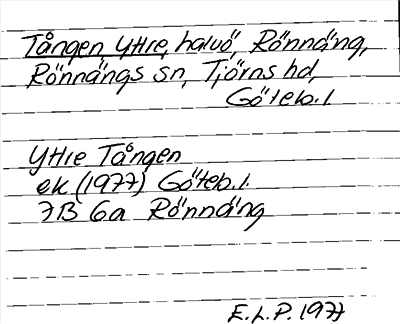 Tången Yttre, halvö, Rönnäng,
Rönnängs sn, Tjörns hd,
Göteb. l
Yttre Tången
ek (1977) Göteb. l.
7B 6a Rönnäng
E.L.P. 1977